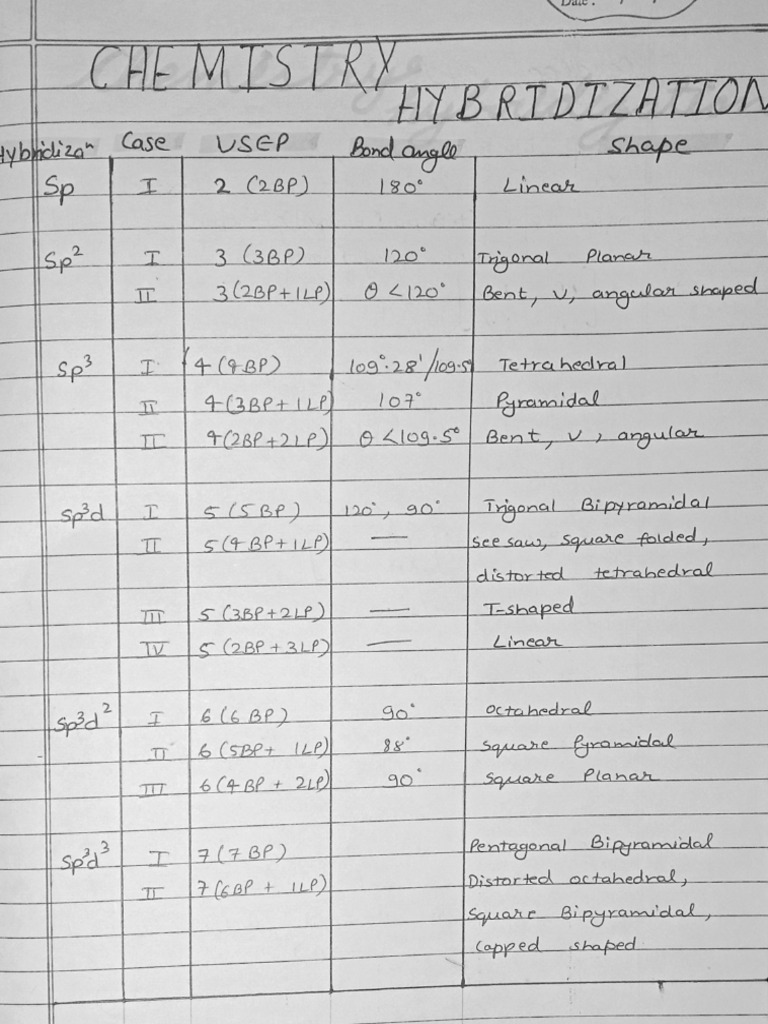 Date :
CHEMISTRY
HYBRIDIZATION
Hybridizaⁿ Case VSEP Bond angle Shape
Sp I 2 (2BP) 180° Linear
Sp² I 3 (3BP) 120° Trigonal Planar
II 3(2BP+1LP) θ <120° Bent, V, angular shaped
Sp³ I 4(4BP) 109°.28'/109.5 Tetrahedral
II 4(3BP+1LP) 107° Pyramidal
II 4(2BP+2LP) θ <109.5° Bent, V, angular
Sp³d I 5 (5BP) 120°, 90° Trigonal Bipyramidal
II 5(4BP+1LP) — see saw, square folded,
distorted tetrahedral
III 5 (3BP+2LP) — T-shaped
IV 5 (2BP+3LP) — Linear
Sp³d² I 6 (6 BP) 90° octahedral
II 6 (5BP+ 1LP) 88° square Pyramidal
III 6(4BP + 2LP) 90° square Planar
Sp³d³ I 7 (7 BP) Pentagonal Bipyramidal
II 7(6BP + 1LP) Distorted octahedral,
square Bipyramidal,
capped shaped